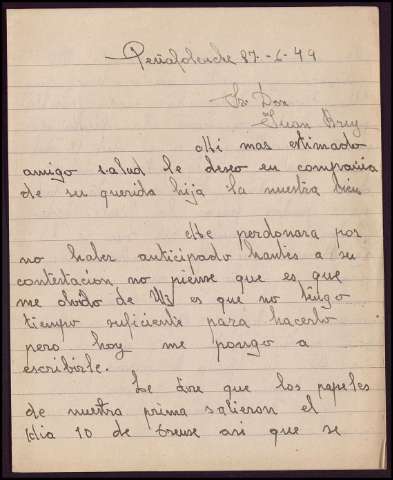 Peñafolenche 27-6-49
Sr. Don
Juan Brey
Mi mas estimado
amigo salud le deseo en compañia
de su querida hija la nuestra bien
Me perdonara por
no haber anticipado hantes a su
contestación no piense que es que
me olvido de Vd es que no tengo
tiempo suficiente para hacerlo
pero hoy me pongo a
escribirle.
Le dire que los papeles
de nuestra prima salieron el
dia 10 de treuse asi que se